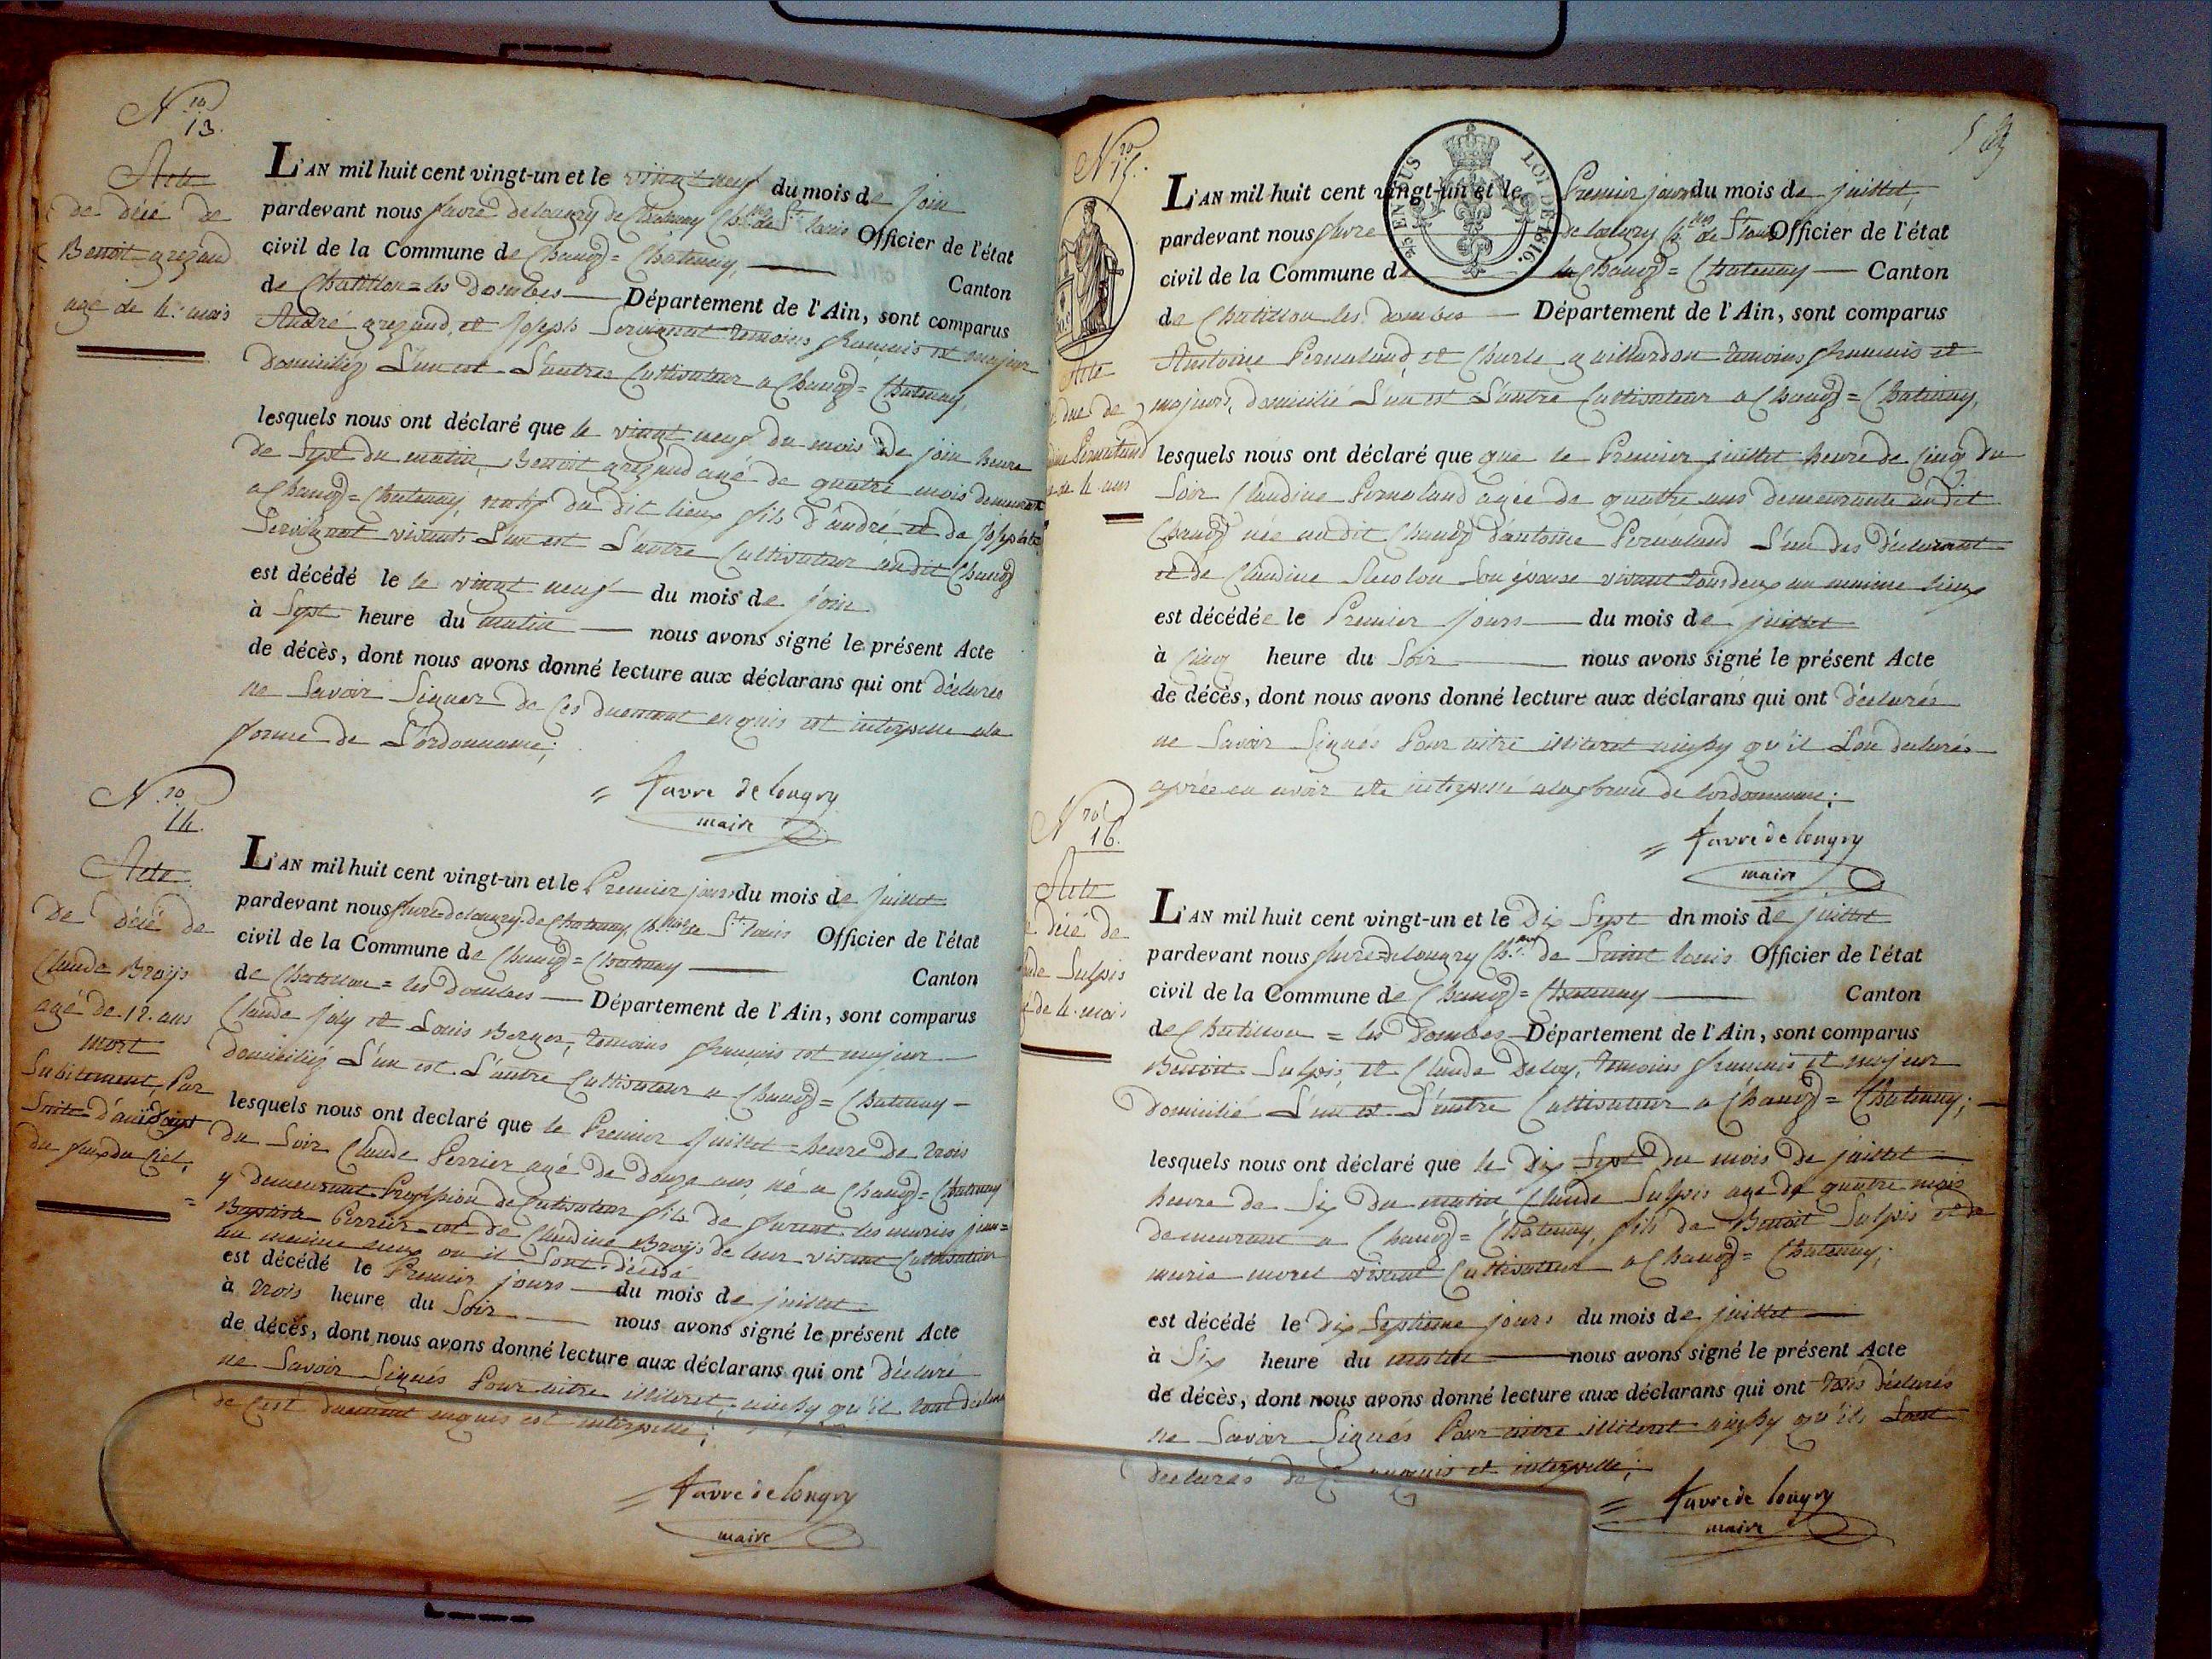 N.ro 13.
Acte
de décé de
Benoit grezaud
agé de 4. mois
L'AN mil huit cent vingt-un et le vingt neuf du mois de join
pardevant nous favre delongry de Chatenay Ch.lier de St. louis Officier de l'état
civil de la Commune de Chanoz = Chatenay, Canton
de Chatillon = les dombes Département de l'Ain, sont comparus
André grezaud, et Joseph Servignat temoins francais et majeur
domiciliéz L'un est L'autre Cultivateur a Chanoz = Chatenay,
lesquels nous ont déclaré que le vingt neuf du mois de join heure
de Sept du matin, Benoit grezaud agé de quatre mois demeurant
a Chanoz = Chatenay, natif du dit lieux fils d'andré et de Josephte
Servignat vivants L'un est L'autre Cultivateur audit Chanoz
est décédé le le vingt neuf du mois de join
à Sept heure du matin nous avons signé le présent Acte
de décès, dont nous avons donné lecture aux déclarans qui ont déclarés
ne Savoir Signer de Ces duement enquis et interpelle ala
forme de L'ordonnance;
= favre de longry
maire
N.ro 14.
Acte
De décé de
Claude Broÿs
agé de 12. ans
mort
Subitement, Par
Suite d'
du feux du Ciel,
L'AN mil huit cent vingt-un et le Premier jours du mois de juillet
pardevant nous favre = delongry de Chatenay Ch.lier de St. louis Officier de l'état
civil de la Commune de Chanoz = Chatenay Canton
de Chatillon = les dombes Département de l'Ain, sont comparus
Claude joly et Louis Berger, temoins francais est majeur
domiciliéz L'un est L'autre Cultivateur a Chanoz = Chatenay
lesquels nous ont declaré que le Premier juillet = heure de trois
du Soir Claude Perrier agé de douze ans, né a Chanoz = Chatenay
y demeurant Profession de Cultivateur fils de
Baptiste Perrier est de Claudine Broÿs de leur vivant Cultivateur
au meime lieux ou il Sont décédé
est décédé le Premier jours du mois de juillet
à trois heure du Soir nous avons signé le présent Acte
de décès, dont nous avons donné lecture aux déclarans qui ont déclaré
ne Savoir Signés Pour aitre illiteret, ainsy qu'il
de Cest duement enquis est interpelle;
= favre de longry
maire
N.ro 15.
5
Acte
L'AN mil huit cent vingt-un et le Premier jours du mois de juillet,
pardevant nous favre de longry Ch.lier de St louis Officier de l'état
civil de la Commune de Chanoz = Chatenay Canton
de Chatillon les dombes Département de l'Ain, sont comparus
Antoine Pernataud, et Charle guillardon temoins francais et
majeurs, domicilié L'un est L'autre Cultivateur a Chanoz = Chatenay,
LOI DE 1816.
EN SUS
de 4 ans
lesquels nous ont déclaré que que le Premier juillet heure de Cinq du
Soir Claudine Pernataud agée de quatre ans demeurante audit
Chanoz née audit Chanoz d'antoine Pernataud L'un des déclarant
et de Claudine Son épouse vivant tous deux au meime lieux
est décédée le Premier jours du mois de juillet
à Cinq heure du Soir nous avons signé le présent Acte
de décès, dont nous avons donné lecture aux déclarans qui ont déclarés
ne Savoir Signés Pour aitre illiteret ainsy qu'il L'on declarés
après en avoir ete interpellé ala forme de lordonnance;
= favre de longry
maire
N.ro 16.
Acte
décé de
Sulpis
de 4. mois
L'AN mil huit cent vingt-un et le Dix Sept du mois de juillet
pardevant nous favre = delongry Ch.lier de Saint louis Officier de l'état
civil de la Commune de Chanoz = Chatenay Canton
de Chatillon = les Dombes Département de l'Ain, sont comparus
Benoit Sulpis, et Claude Deloy, temoins francais et majeur
Domicilié L'un est L'autre Cultivateur a Chanoz = Chatenay;
lesquels nous ont déclaré que le Dix Sept du mois de juillet
heure de Six du matin, Claude Sulpis age de quatre mois
demeurant a Chanoz = Chatenay, fils de Benoit Sulpis et de
marie morel vivant Cultivateur a Chanoz = Chatenay;
est décédé le dix Septieme jours du mois de juillet
à Six heure du matin nous avons signé le présent Acte
de décès, dont nous avons donné lecture aux déclarans qui ont tous déclarés
ne Savoir Signés Pour aitre illiteret ainsy qu'ils Lont
declarés de enquis et interpellé;
= favre de longry
maire